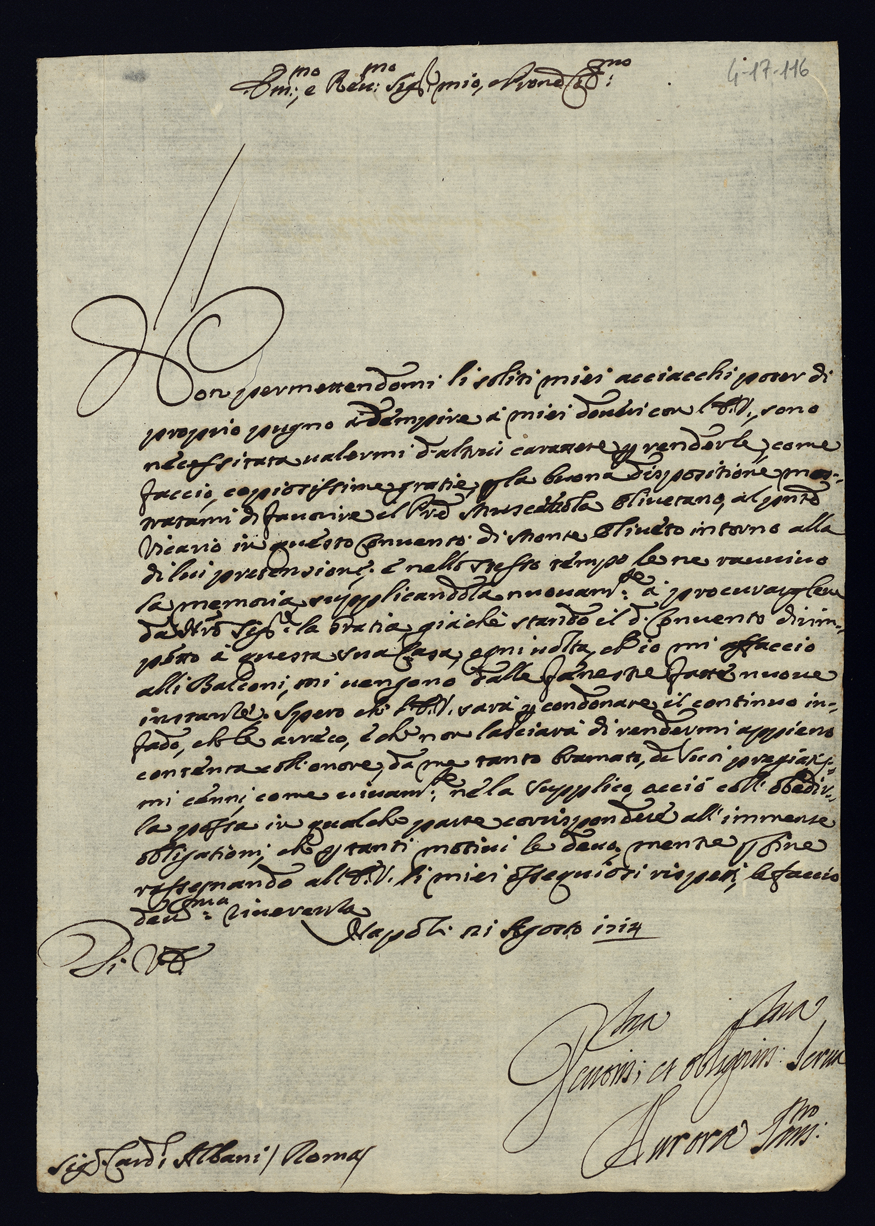 4-17-116
Em:mo, e Reu:mo Sig.r mio, e Pron.e Col:mo
Non permettendomi li soliti miei acciacchi poter di
proprio pugno adempire à miei doueri con l'E.V., sono
necessitata ualermi d'altrui carattere p renderle, come
faccio, copiosissime gratie, p la buona dispositione, mos-
tratami di fauorire il Prd Muscettola Oliuetano, al
Vicario in questo Conuento di Monte Oliueto intorno alla
di lui pretensione: e nello stesso tempo le ne rauuiuo
la memoria, supplicandola nuouam:te à procurargleu
da Nrô Sig.re la Gratia, giàche stando il d.o Conuento dirim-
petto à questa sua Casa, ogni uolta, ch'io mi affaccio
alli Balconi, mi uengono dalle fenestre fatte nuoue
instanze. Spero che l'E.V. sarà p condonare il continuo in-
fado, che le arreco, e che non lasciarà di rendermi appieno
contenta coll'onore, da me tanto bramato, de Suoi pregiatis-
mi cenni, come uiuam:te ne la supplico, acciò coll'obedir-
la possa in qualche parte corrispondere all'immense
obligationi, che p tanti motiui le deuo, mentre p fine
rassegnando all'E.V. li miei ossequiosi rispetti, le faccio
deu:ma riuerenza
Napoli 21 Agosto 1714
Di V.E.
Deuotis: et obligatis: Serua
Aurora
Sig.r Card.l Albani / Roma